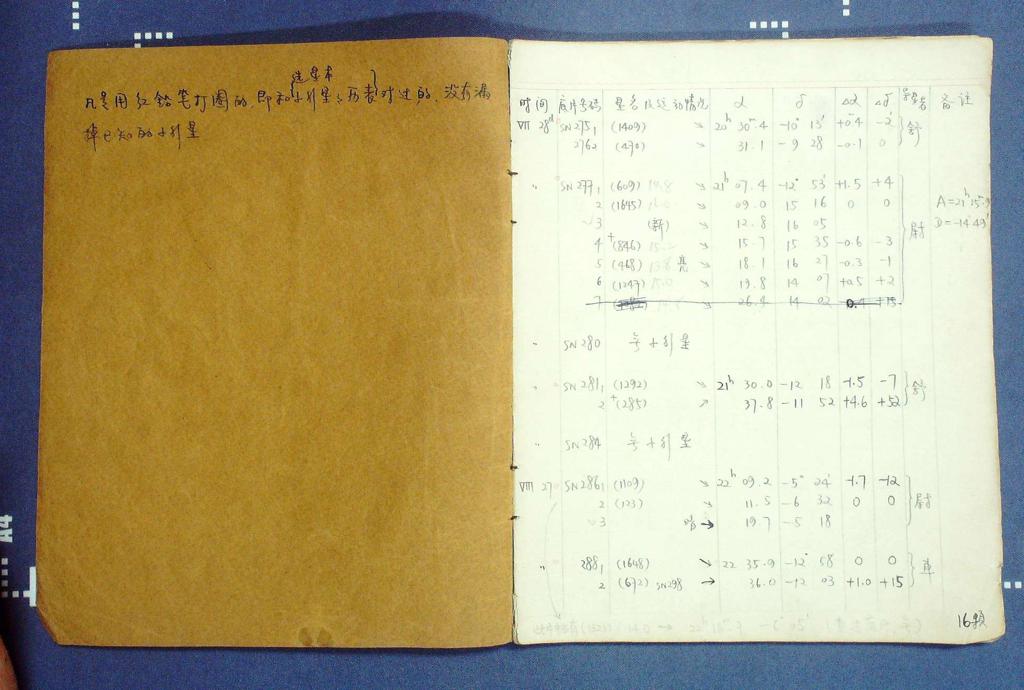 选星本
凡是用红铅笔打圈的,即和小行星历表对过的,没有漏
掉已知的小行星
时间 底片号码 星名以运动情况 α δ Δα Δδ 备注
VII 28d SN2751 (1409) ↘ 20h 30m.4 -10° 13' +0.4 -2' 舒
2762 (470) ↘ 31.1 -9 28 -0.1 0
" SN2771 (609) ↘ 21h 07.4 -12° 53' +1.5 +4
2 (1645) ↘ 09.0 15 16 0 0
√3 (新) ↘ 12.8 16 05
4 +(846) ↘ 15.7 15 35 -0.6 -3 尉
5 (468) 亮 ↘ 18.1 16 27 -0.3 -1
6 (1247) ↘ 19.8 14 07 +0.5 +2
7 ↘ 26.4 14 02 0.4 +15
A=21h 15m.9
D=-14°49'
" SN280 无小行星
" SN2811 (1292) ↘ 21h 30.0 -12 18 -1.5 -7 舒
2 +(285) ↗ 37.8 -11 52 +4.6 +52
" SN284 无小行星
VIII 27 SN2861 (1109) ↘ 22h 09.2 -5° 24' -1.7 -12
2 (123) ↘ 11.5 -6 32 0 0 尉
√3 暗 → 19.7 -5 18
" 2881 (1648) ↘ 22 35.9 -12° 58 0 0
2 (672) SN298 → 36.0 -12 03 +1.0 +15
16颗